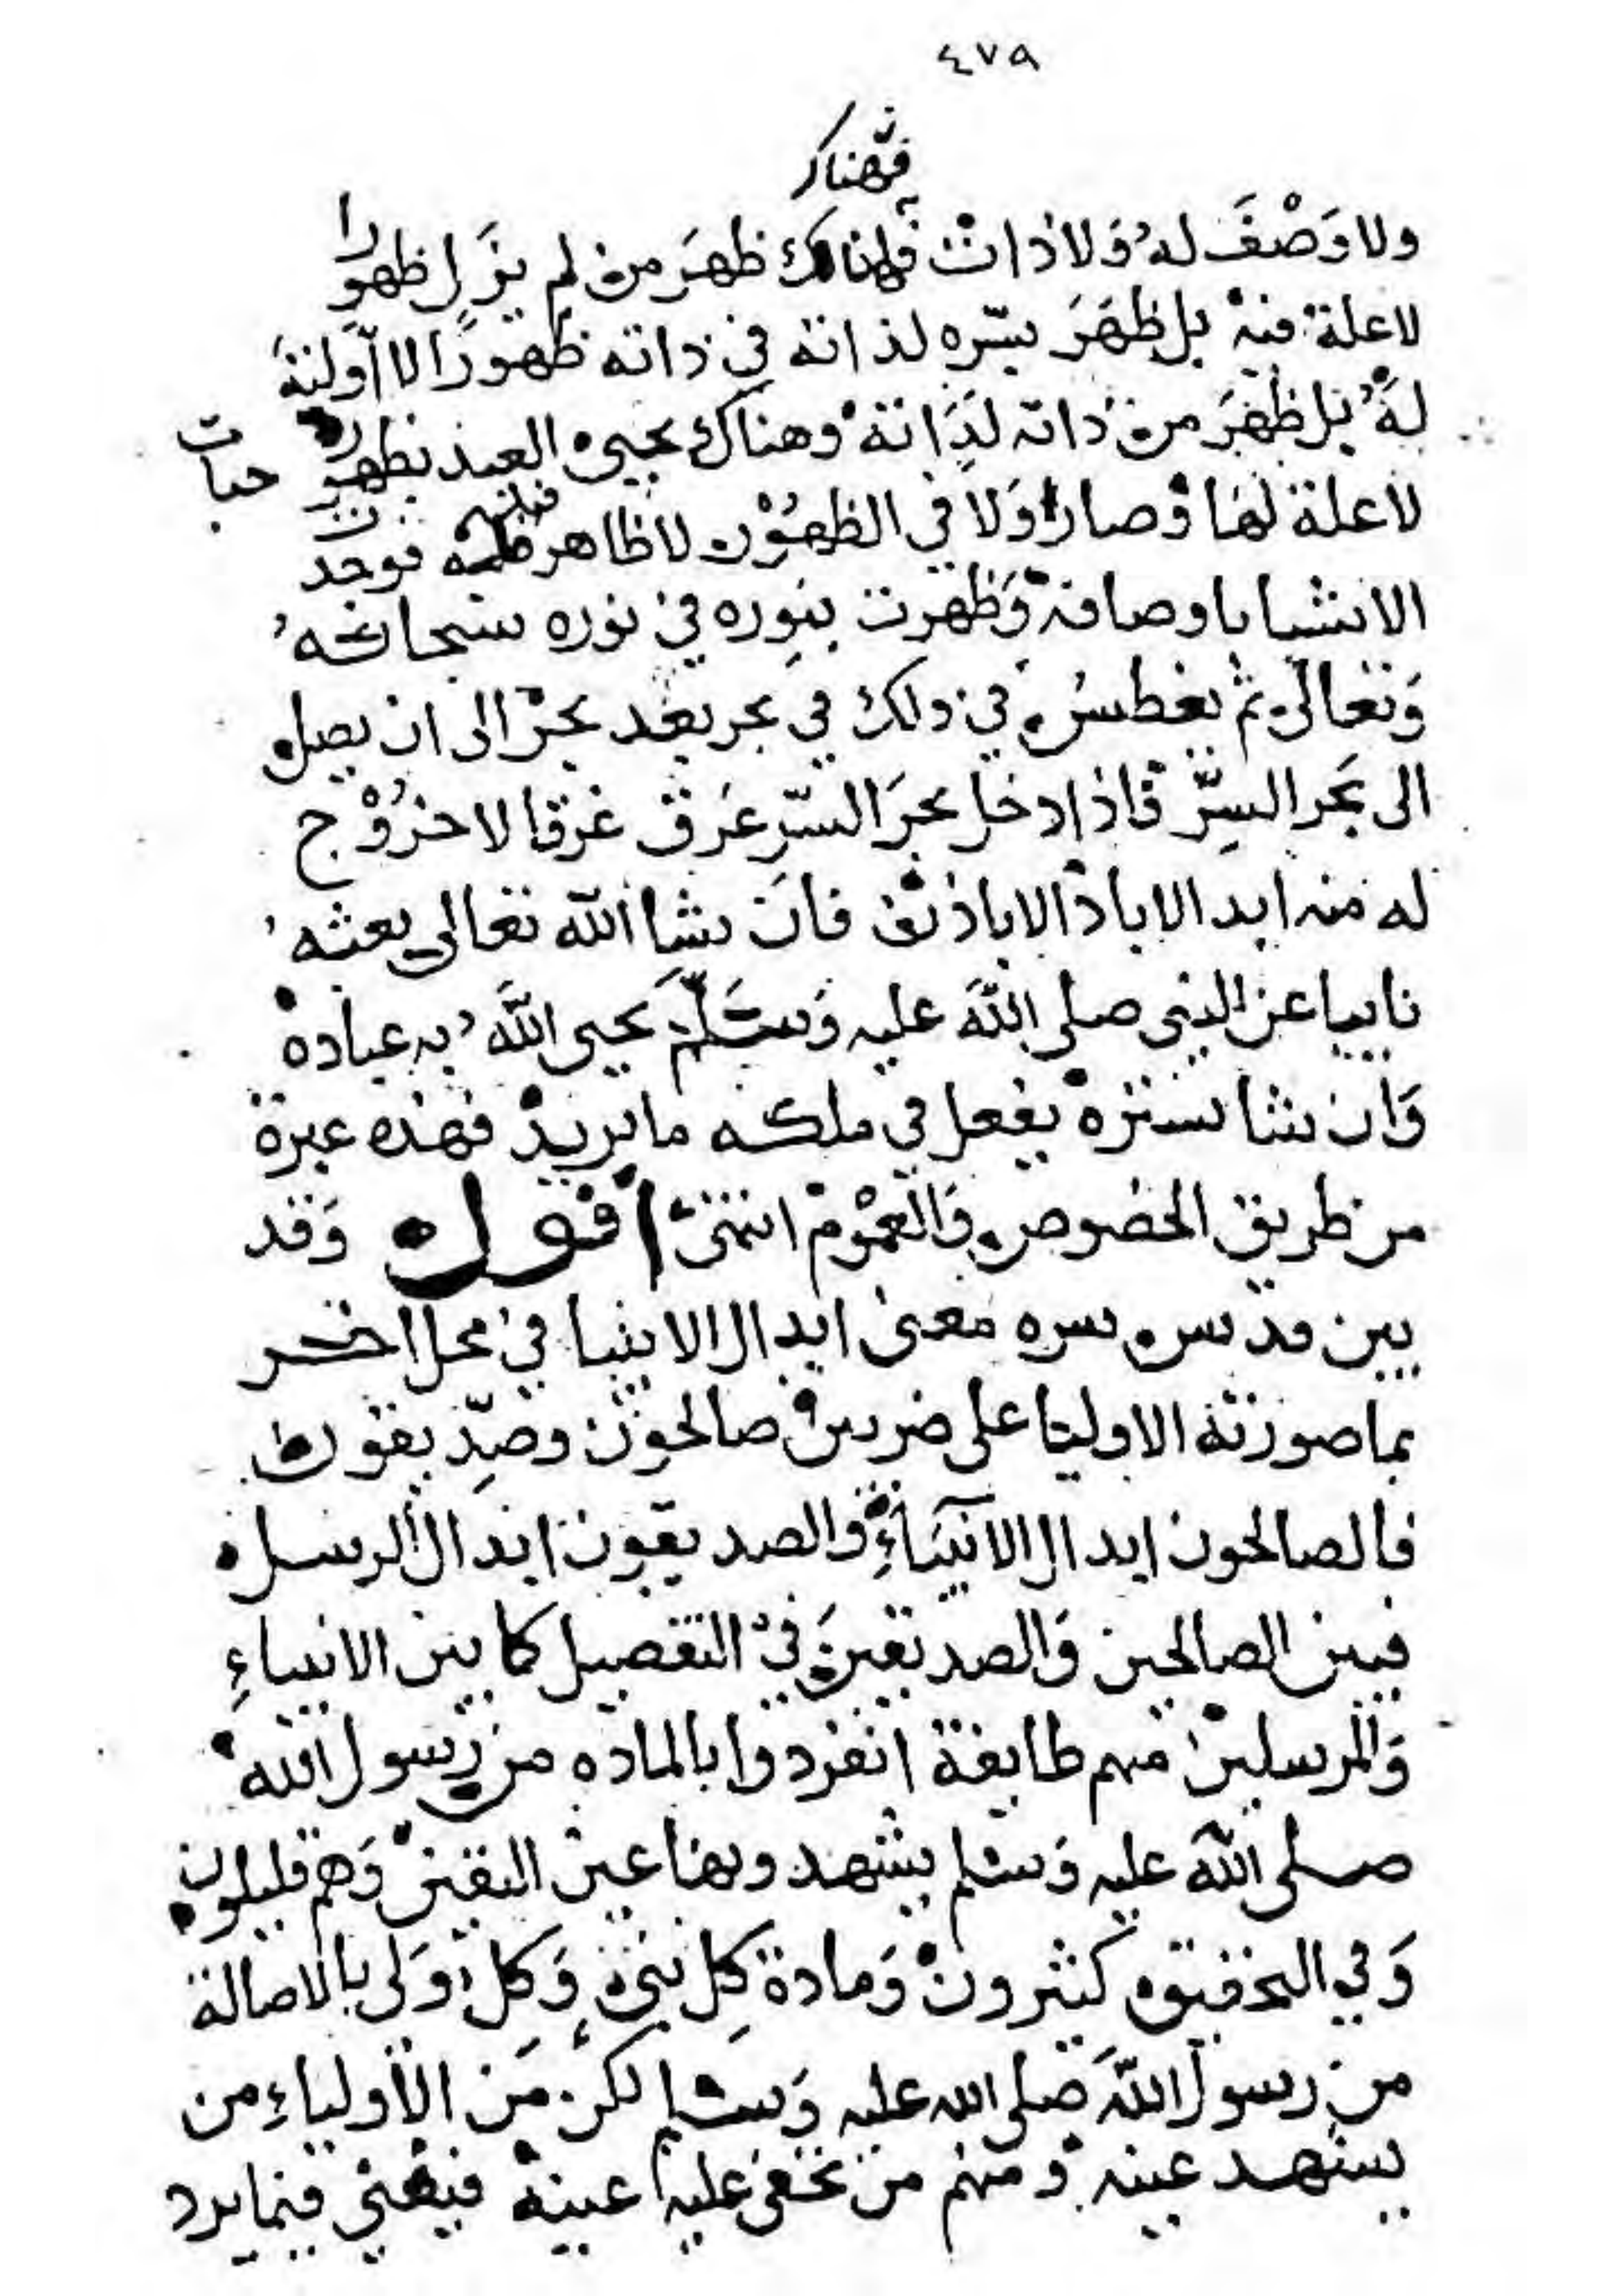 ٤٧٩
فهناك
ولا وَصْفَ له ُوَلا ذات فهناك ظهَرَ من لم يزَل ظهورا
لاعلة فيه بل ظَهَرَ بسّره لذاته في ذاته ظهورًا لا أوّلية
لهَُ بل ظهَرَ من ذاته لذَاته وهناك يحيى العبد بظهوره حياة
لاعلة لهَا وَصار اوَلا في الظهُوْر لا ظاهر قبله فوجد
الاشيا باوصافه وَظهرت بنوِره في نوره سبحانه ُ
وَتعالى ثم يغطسُ في ذلك في بحر بعد بحر الى ان يصل
الى بَحر السِرّ فاذا دخل بحرَ السّر غَرَق غرقا لا خرُوْج
له منه ابد الاباد الا باذنه فان يشا الله تعالى بعثه ُ
نايبا عن النبى صلى اللهَ عليه وَسَلّمَ يحيى اللهَ ُ به عباده
وَان يشا ستره يفعل في ملكه ما يريد فهذه عبرة
من طريق الخصوص وَالعمُوْم انتهى اقول وَقد
بين قدس سره معنى ابدال الانبيا في محل اخر
بما صورته الاوليا على ضربين صالحون وصِدّيقون
فالصالحون ابدال الانبيَآءِ وَالصديقون ابدال الرسل
فبين الصالحين وَالصديقينَ في التفضيل كما بين الانبياءِ
وَالمرسلين منهم طايفة انفردوا بالماده من رسول الله
صلى اللهَ عليه وَسلم يشهدونها عين اليقين وَهم قليلون
وَفي التحقيق كثيرون وَمادة كِل نبى وَكل وَلى بالاصالة
من رسول اللهَ صَلى الله عليه وَسلم لكن مَن الأولياءِ من
يشهد عينه وَمنهم من تخفى عليه عينه فيفنى فيما يرد